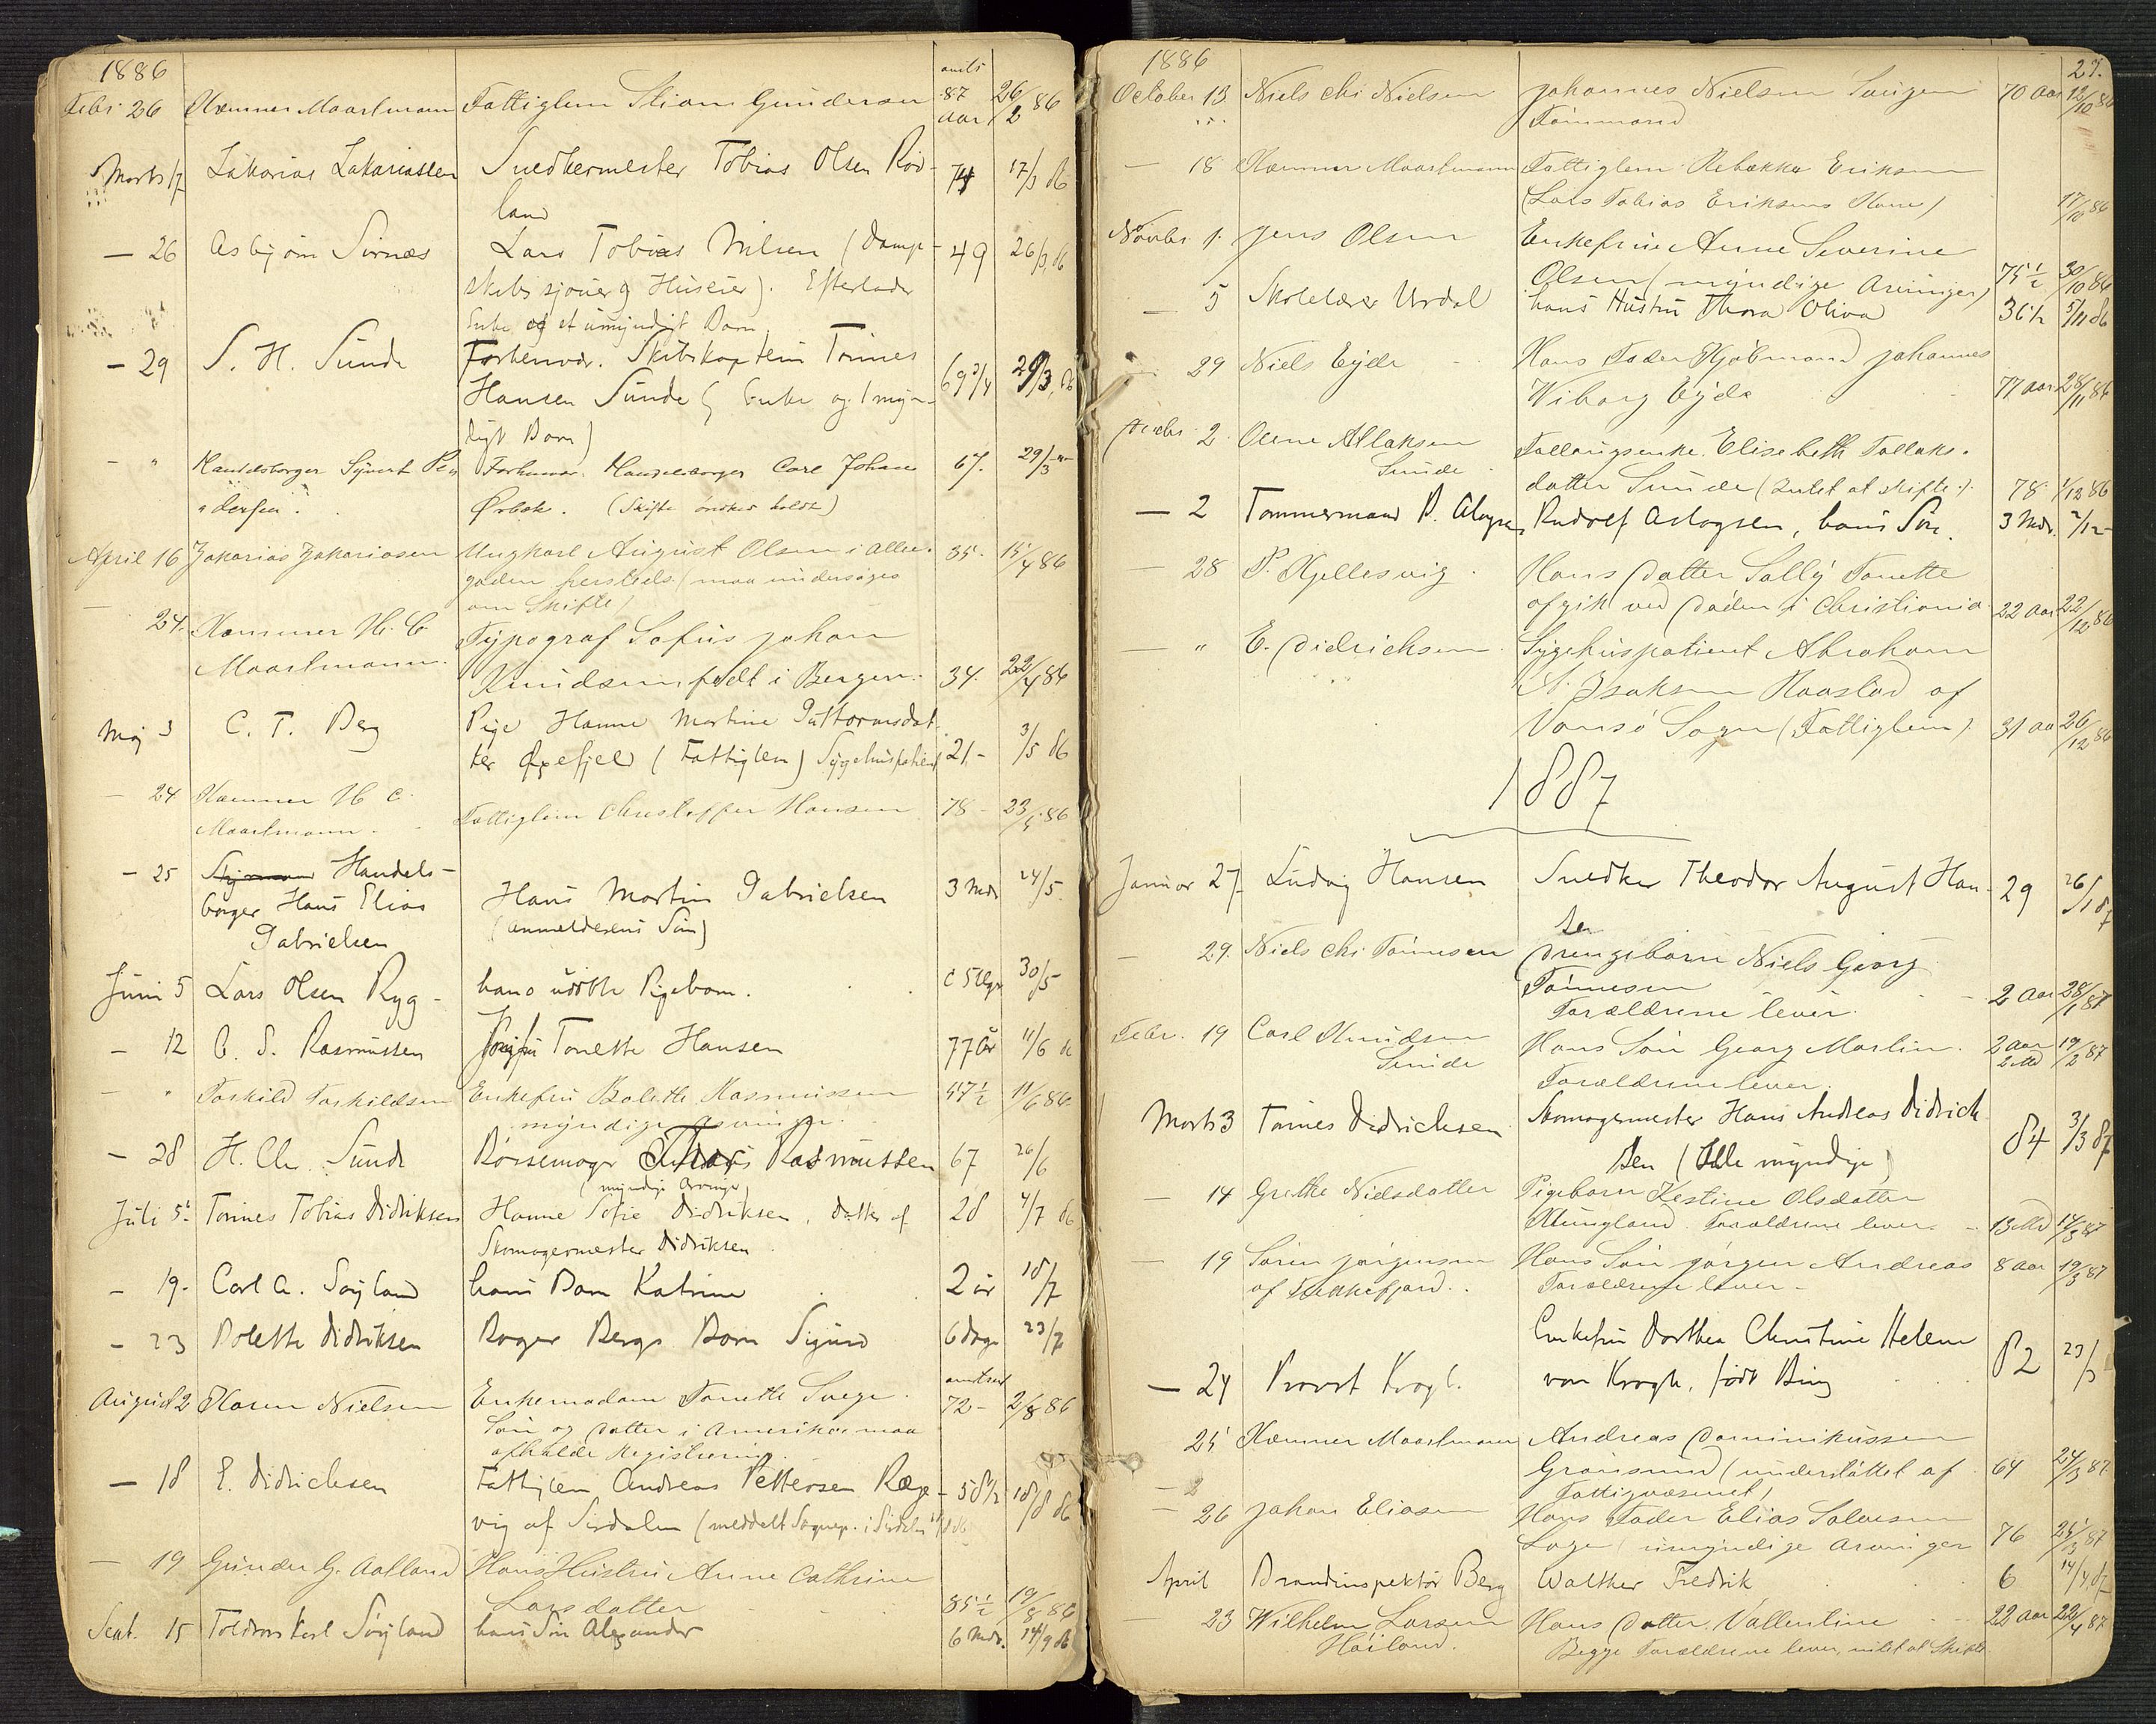 1886
Febr. 26 Kæmner Maartmann Fattiglem Stian Gundersen amts 87 Aar 26/2 86
Marts 17 Zakarias Zakariassen Snedkermester Tobias Olsen Rød- 74 17/3 86
land
— 26 Asbjørn Sirnæs Lars Tobias Nilsen (Damp- 49 26/3 86
skibssjouer og Huseier). Efterlader
Enke og et umyndigt Barn
— 29 S. H. Sunde Forhenvær. Skibskaptein Tønnes 69 3/4 29/3 86
Hansen Sunde (Enke og 1 myn-
digt Barn)
— " Handelsborger Sivert Pe- Forhenvær. Handelsborger Carl Johan 67. 29/3
dersen. Ørbæk. (Skifte ønskes holdt)
April 16 Zakarias Zakariasen Ungkarl August Olsen i Allee- 35. 15/4 86
gaden hersteds (maa undersøges
om Skifte)
— 24. Kæmner H. C. Typograf Sofus Johan
Maartmann. Knudsen født i Bergen. 34. 22/4 86
Maj 3 C. T. Berg Pige Hanne Martine Guttormsdat-
ter Øxefjeld (Fattiglem) Sygehuspatient 21 – 3/5 86
— 24 Kæmner H C. Fattiglem Christopher Hansen 78 – 23/5 86
Maartmann.
— 25 Styrmand Handels-
borger Hans Elias Hans Martin Gabrielsen 3 Mdr 24/5.
Gabrielsen (Anmelderens Søn)
Juni 5 Lars Olsen Ryg – hans udøbte Pigebarn. c 5 Uger 30/5
— 12 C. S. Rasmussen Jomfru Tonette Hansen 77 År 11/6 86
— " Taskild Taskildsen Enkefru Bolette Rasmussen 57½ 11/6 86.
myndige Arvinger.
— 28 H. Chr. Sunde Børssemager Thor Rasmussen 67 26/6
(myndige Arvinger)
Juli 5. Tønnes Tobias Didriksen Hanne Sofie Didriksen, datter af 28 4/7 86
Skomagermester Didriksen
— 19. Carl A. Søyland hans Barn Katrine 2 år 18/7
— 23 Bolette Didriksen Roger Bergs Barn Sigurd 6 dage 23/7
August 2 Karen Nielsen Enkemadam Tonette Svege. omtrent 72 – 2/8 86
Søn og Datter i Amerika maa
afholde Registrering.
— 18 E. Didrichsen Fattiglem Andreas Pettersen Ræge- 58½ 18/8 86
vig af Sirdalen (meddelt Sognepr. i Sirdalen
— 19 Gunder G. Aatland Hans Hustru Anne Cathrine
Larsdatter 85½ 19/8 86
Sept. 15 Toldroerskarl Søyland hans Søn Alexander 6 Mdr. 14/9 86
1886 27.
October 13 Niels Chr Nielsen Johannes Nielsen Saugen 70 Aar 12/10 86
Tømmermand
— 18 Kæmner Maartmann Fattiglem Rebekka Eriksen
(Lars Tobias Eriksens Kone) 17/10 86
Novbr. 1. Jens Olsen Enkefrue Anne Severine
Olsen (myndige Arvinger) 75½ 30/10 86
— 5 Skolelærer Urdal hans Hustru Thora Oliva 36½ 5/11 86
29 Niels Eyde Hans Fader Kjøbmand Johannes
Wiborg Eyde 77 Aar 28/11 86
Decbr. 2 Ole Atlaksen Tallaugsenke Elisabeth Tollaks-
Sunde datter Sunde (Intet at skifte). 78 1/12 86
— 2 Tømmermand P. Aslagsen Rudolf Aslagsen, hans Søn. 3 Mdr. 2/12 –
— 28 P. Kjellesvig Hans Datter Sally Tonette
afgik ved Døden i Christiania 22 Aar 22/12 86
— " E. Didrichsen Sygehuspatient Abraham
Isaksen Haastad af
Vansø Sogn (Fattiglem). 31 Aar 26/12 86
1887
Januar 27 Ludvig Hansen Snedker Theodor August Han- 29 26/1 87
sen
— 29. Niels Chr Tønnesen Drengebarn Niels Georg
Tønnesen 2 Aar 28/1 87
Forældrene lever.
Febr. 19 Carl Knudsen Hans Søn Georg Martin. 2 Aar 2 Md 19/2 87
Sunde Forældrene lever.
Marts 3 Tønnes Didrichsen Skomagermester Hans Andreas Didrich-
sen (Alle myndige) 84 3/3 87
— 14 Grethe Nielsdatter Pigebarn Kestine Olsdatter
Klungland Forældrene lever – 13 Md 14/3 87
— 19 Søren Jørgensen Hans Søn Jørgen Andreas 8 Aar 19/3 87
af Fædefjord. Forældrene lever –
— 24 Provst Krogh. Enkefru Dorthea Christine Helene
von Krogh, født Bing 82 23/3
25 Kæmner Maartmann Andreas Dominikussen
Grønsund (understøttet af 64 24/3 87
Fattigvæsenet)
— 26 Johan Eliasen Hans Fader Elias Salvesen
Lage (umyndige Arvinger 76 25/3 87
April Brandinspektør Berg Walther Fredrik 6 14/4 87
— 23 Wilhelm Larsen Hans Datter Vallentine 22 Aar 22/4 87
Høiland. Begge Forældrene lever, intet at Skifte